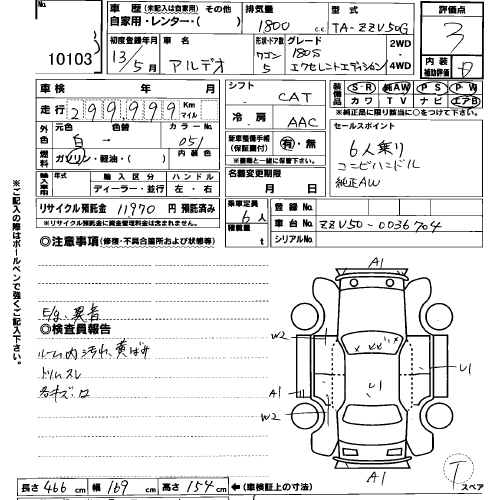 No.
10103
車歴 (未記入は自家用) その他
自家用・レンター・( )
排気量 1800 cc
型式 TA-ZZV50G
評価点
3
初度登録年月 13年5月
車名 アルデオ
形状・ドア数 ワゴン 5
グレード 180S エクセレントエディション
2WD
4WD
内装
補助評価
車検 年 月
走行 299,999 Km マイル
外色
元色 白 → 色替
カラーNo. 051
燃料 ガソリン・軽油・( )
内装色
輸入車用
年式
輸入区分 ディーラー・並行
ハンドル 左・右
リサイクル預託金 11970 円 預託済み
※リサイクル預託金に資金管理料金は含まれません。
シフト CAT
冷房 AAC
新車整備手帳 (保証書付) 有・無
※直前と一緒にご提出下さい。
名義変更期限
月 日
乗車定員 6人
積載量 t
装備品 S・R 純AW P S P W
カワ TV ナビ エアB
※純正品に限り該当に○をつけて下さい。
セールスポイント
6人乗り
コンビハンドル
純正AW
登録No.
車台No. ZZV50-0036704
シリアルNo.
◎注意事項 (修復・不具合箇所および状態等)
E/g 異音
◎検査員報告
ルーム内汚れ、黄ばみ
トリムスレ
各キズ凹
※ご記入の際はボールペンで強くご記入下さい。
A1
W2
A1
W2
U1
U1
A1
T
スペア
長さ 466 cm 幅 169 cm 高さ 154 cm ←(車検証上の寸法)